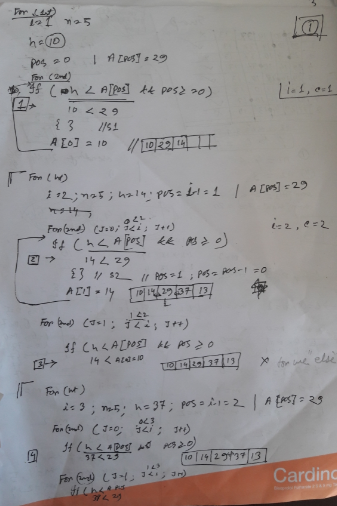 For (1st)
i=1 n=5
①
h=10
pos = 0 | A[pos]=29
For (2nd)
If ( h < A[pos] && pos ≥ 0)
i=1, c=1
1 →
10 < 29
{ } //s1
A[0] = 10 // 10 29 14
For (1st)
i=2; n=5, h=14; pos=i-1=1 | A[pos]=29
h=14
0<2
For(2nd) (J=0; J<i; J++)
i=2, c=2
If ( h < A[pos] && pos ≥ 0)
2 →
14 < 29
{ } // s2 // pos=1; pos=pos-1=0
A[1]=14 10 14 29 37 13
1<2
For(2nd) (J=1; J<i; J++)
If (h<A[pos] && pos ≥ 0
3 →
14 < A[0]=10 10 14 29 37 13 × else
For (1st)
i=3; n=5; h=37, pos=i-1=2 | A[pos]=29
0<3
For(2nd) (J=0; J<i; J++)
If (h < A[pos] && pos≥0)
4
37<29 10 14 29 37 13
1<3
For(2nd) (J=1; J<i; J++)
If (h<
37<29